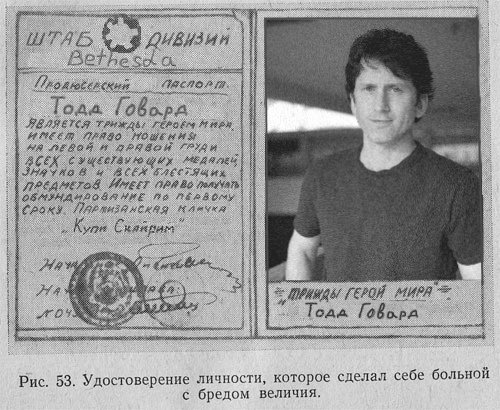 ШТАБ ДИВИЗИЙ
Bethesda
Продюсерский паспорт.
Тодд Говард
Является трижды героем мира,
имеет право ношения
на левой и правой груди
всех существующих медалей,
значков и всех блестящих
предметов. Имеет право получать
обмундирование по первому
сроку. Партизанская кличка
"Купи Скайрим"
"ТРИЖДЫ ГЕРОЙ МИРА"
Тодд Говард
Рис. 53. Удостоверение личности, которое сделал себе больной
с бредом величия.